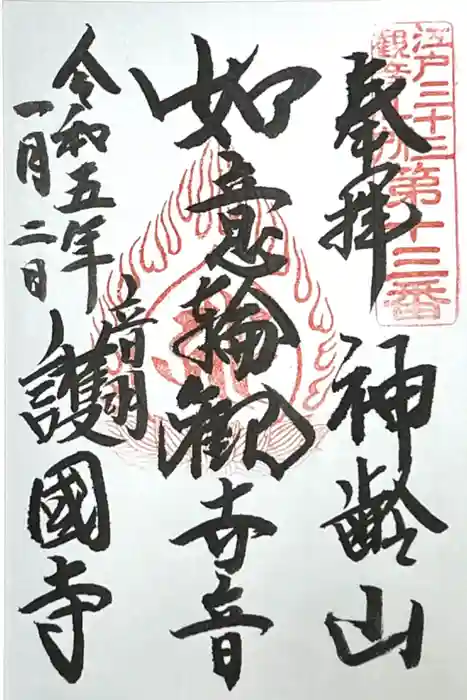 江戸三十三
観音札所
第十三番
奉拝
神齢山
如意輪観世音
音羽
護國寺
令和五年
一月二日